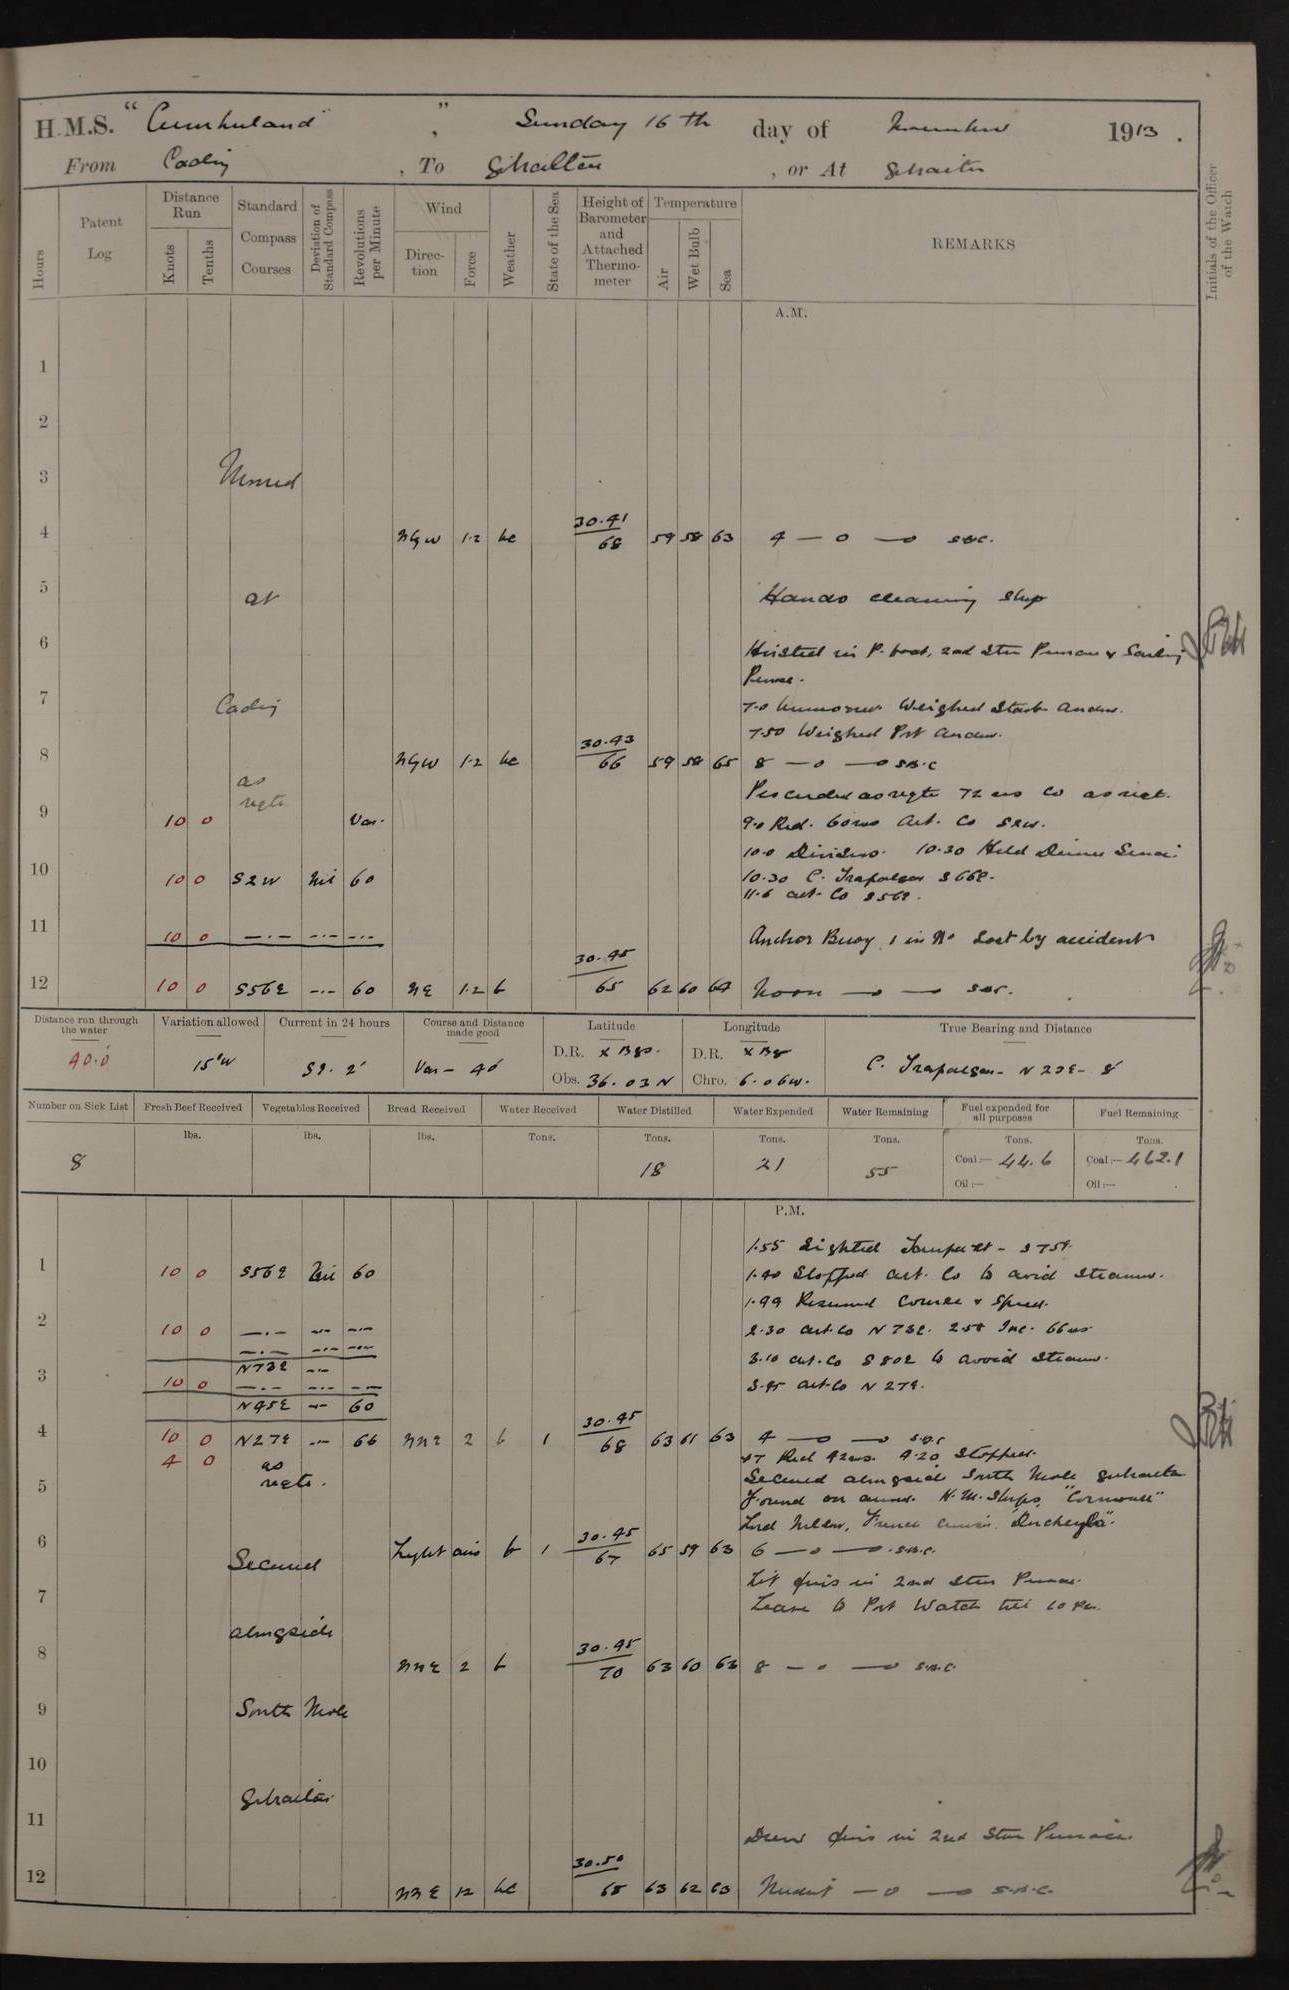 H.M.S. "Cumberland", Sunday 16th day of November 1913.
From Cadiz, To Gibraltar, or At Gibraltar
Hours
Patent Log
Distance Run
Knots
Tenths
Standard Compass Courses
Deviation of Standard Compass
Revolutions per Minute
Wind
Direction
Force
Weather
State of the Sea
Height of Barometer and Attached Thermometer
Temperature
Air
Wet Bulb
Sea
REMARKS
Initials of the Officer of the Watch
A.M.
1
2
3 Moored
30.41
4 NGW 1.2 bc 68 59 58 63 4 — o — o S.B.C.
5 at Hands cleaning ship
6 Hoisted in P. boat, 2nd Stm Pinnace & Sailing
Pinnace.
7 Cadiz 7.0 Unmoored Weighed Starb. Anchor.
7.50 Weighed Port Anchor.
30.43
8 NGW 1.2 bc 66 59 58 65 8 — o — o S.B.C
as Proceeded as reqte 72 revs Co as reqt.
reqte
9 10 0 Var. 9.0 Red. 60 revs Alt. Co S2W.
10.0 Divisions. 10.30 Held Divine Service
10 10 0 S2W Nil 60 10.30 C. Trafalgar S66E.
11.6 alt. Co S56E.
11 10 0 —.— —.— —.— Anchor Buoy 1 in No Lost by accident
30.45
12 10 0 S56E —.— 60 NE 1.2 b 65 62 60 64 Noon — o — S.B.C.
Distance run through the water
40.0
Variation allowed
15°W
Current in 24 hours
Course and Distance made good
Var — 40
Latitude
D.R. x Bgs.
Obs. 36.03 N
Longitude
D.R. x Bg
Chro. 6.06W.
True Bearing and Distance
C. Trafalgar — N 23E — 8'
Number on Sick List
8
Fresh Beef Received
lbs.
Vegetables Received
lbs.
Bread Received
lbs.
Water Received
Tons.
Water Distilled
Tons.
18
Water Expended
Tons.
21
Water Remaining
Tons.
55
Fuel expended for all purposes
Tons.
Coal:— 44.6
Oil:—
Fuel Remaining
Tons.
Coal:— 462.1
Oil:—
P.M.
1.55 Sighted S 75E
1 10 0 S56E Nil 60 1.40 Stopped alt. Co to avoid Steamer.
1.44 Resumed Course & Speed.
2 10 0 —.— —.— —.— 2.30 alt. Co N73E. 2.58 Inc. 66 revs
—.— —.— —.—
N73E —.— 3.10 alt. Co S80E to avoid Steamer.
3 10 0 —.— —.— —.— 3.45 alt. Co N27E.
N45E —.— 60
30.45
4 10 0 N27E —.— 66 NNE 2 b 1 68 63 61 63 4 — o — o S.B.C
4 0 as Red 42 revs. 4.20 Stopped.
reqte. Secured alongside South Mole Gibraltar
5 Found on arrival H.M. Ships "Cornwall"
Lord Nelson, French cruiser "Duchayla".
30.45
6 Secured Light airs b 1 67 65 59 63 6 — o — o S.B.C.
Lit fires in 2nd Stm Pinnace.
7 Leave to Port Watch till 10 PM.
alongside
30.45
8 NNE 2 b 70 63 60 63 8 — o — o S.B.C.
9 South Mole
10
Gibraltar
11
Drew fires in 2nd Stm Pinnace.
30.50
12 NNE 12 bc 68 63 62 63 Midnt — o — o S.B.C.